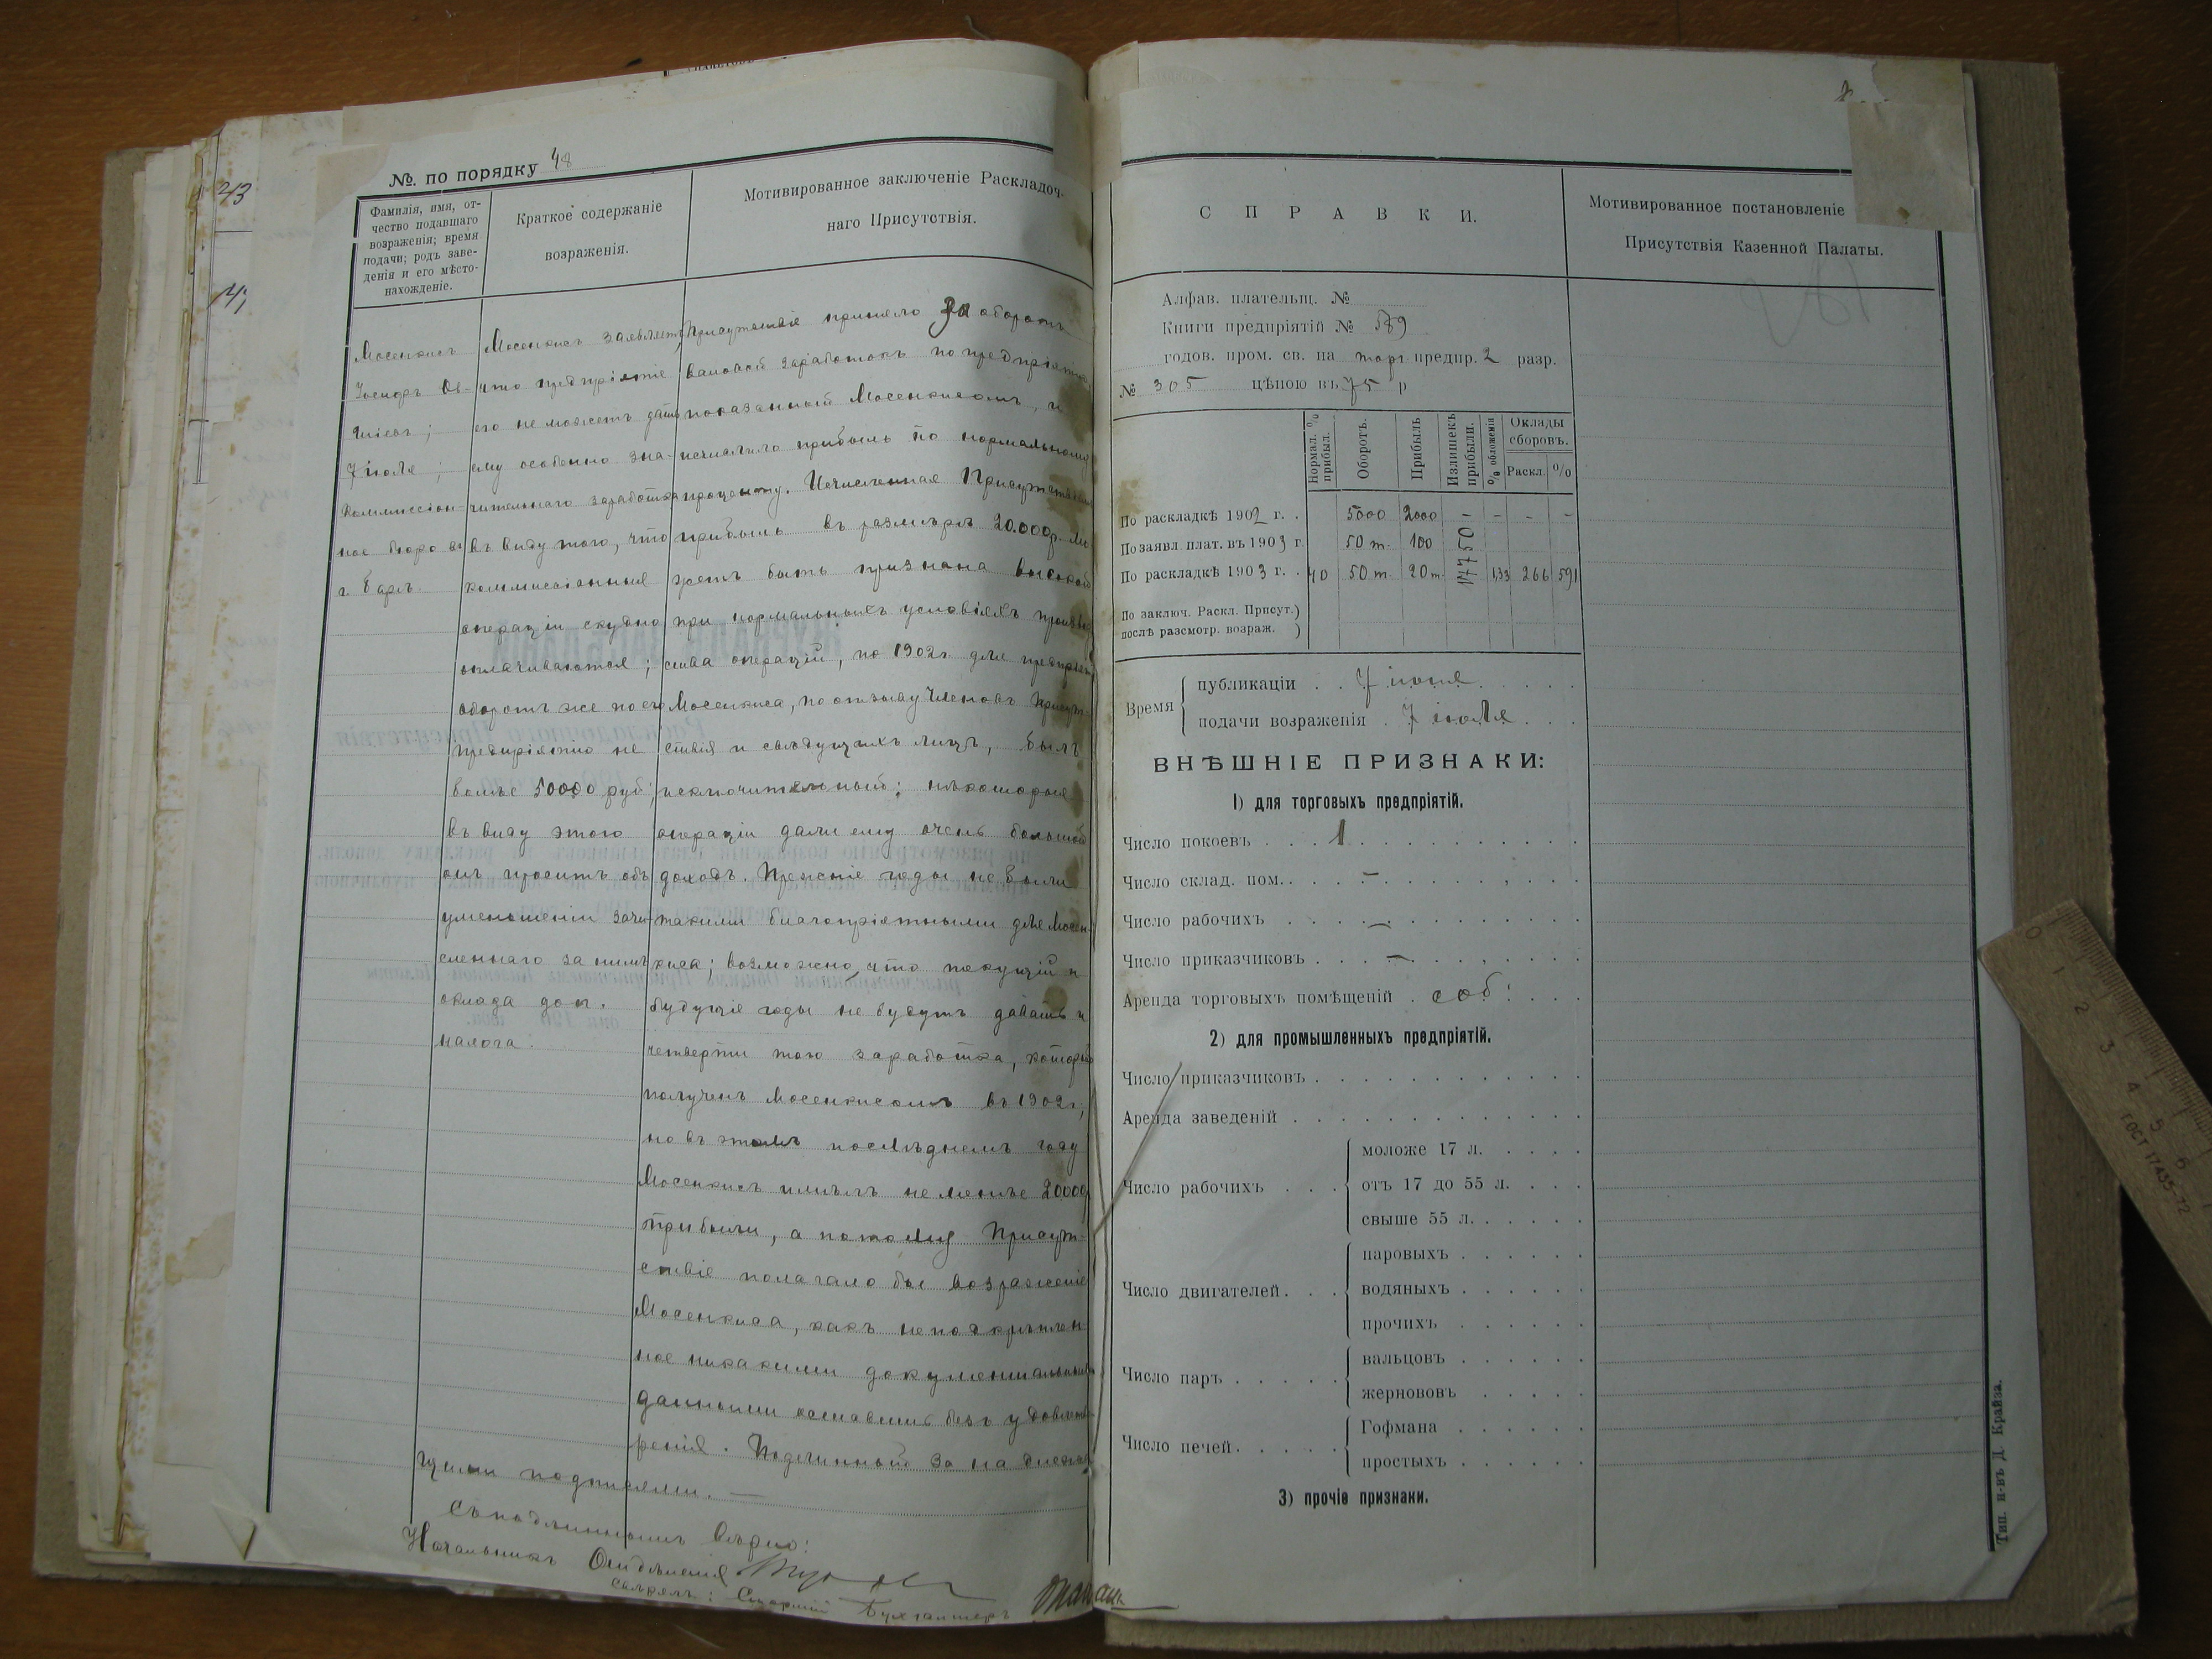 43
№. по порядку 48
Фамилія, имя, от-
чество подавшаго
возраженія; время
подачи; родъ заве-
денія и его мѣсто-
нахожденіе.
Краткое содержаніе
возраженія.
Мотивированное заключеніе Раскладоч-
наго Присутствія.
Мосенкисъ
Іосифъ Ов-
шіевъ;
7 іюля;
Коммиссіон-
ное бюро въ
г. Баръ.
Мосенкисъ заявляетъ,
что предпріятіе
его не можетъ дать
ему особенно зна-
чительнаго заработка
въ виду того, что
коммиссіонныя
операціи скудно
оплачиваются;
оборотъ же по его
предпріятію не
болѣе 50000 руб;
въ виду этого
онъ проситъ объ
уменьшеніи зачи-
сленнаго за нимъ
оклада доп.
налога.
Присутствіе приняло за оборотъ
валовой заработокъ по предпріятію,
показанный Мосенкисомъ, и
исчислило прибыль по нормальному
проценту. Исчисленная Присутствіемъ
прибыль въ размѣрѣ 20.000р. мо
жетъ быть признана высокой
при нормальныхъ условіяхъ производ
ства операцій, но 1902г. для предпріят
Мосенкиса, по отзыву Членовъ Присут-
ствія и свѣдущихъ лицъ, былъ
исключительный; нѣкоторыя
операціи дали ему очень большой
доходъ. Прежніе годы не были
такими благопріятными для Мосен-
киса; возможно, что текущій и
будущіе годы не будутъ давать и
четверти того заработка, который
полученъ Мосенкисомъ въ 1902г.,
но въ этомъ послѣднемъ году
Мосенкисъ имѣлъ не менѣе 20000р
прибыли, а потому Присут-
ствіе полагало бы возраженіе
Мосенкиса, какъ неподкрѣплен-
ное никакими документальными
данными оставить безъ удовлетво-
ренія. Подлинный за надлежа
щими подписями. —
Съ подлиннымъ вѣрно:
Начальникъ Отдѣленія
Свѣрялъ: Старшій Бухгалтеръ
СПРАВКИ.
Мотивированное постановленіе
Присутствія Казенной Палаты.
Алфав. плательщ. №
Книги предпріятій № 589
годов. пром. св. на торг предпр. 2 разр.
№ 305 цѣною въ 75 р
Нормал. % прибыл.
Оборотъ.
Прибыль
Излишекъ прибыли.
% обложенія
Оклады сборовъ.
Раскл.
%
По раскладкѣ 1902 г. . 5000 2000 - - - -
По заявл. плат. въ 1903 г 50 т. 100
По раскладкѣ 1903 г. . 40 50 т. 20 т. 17750 1,33 266 591
По заключ. Раскл. Присут.)
послѣ разсмотр. возраж. )
Время
публикаціи . . 7 іюня . . . .
подачи возраженія . 7 іюля . . .
ВНѢШНІЕ ПРИЗНАКИ:
1) для торговыхъ предпріятій.
Число покоевъ . . . 1 . . . . . . . . . .
Число склад. пом. . . . – . . . . . . . . .
Число рабочихъ . . . . – . . . . . . . .
Число приказчиковъ . . . . – . . . . . . . .
Аренда торговыхъ помѣщеній . соб: . . .
2) для промышленныхъ предпріятій.
Число приказчиковъ . . . . . . . . . . . .
Аренда заведеній . . . . . . . . . . . . .
Число рабочихъ . . .
моложе 17 л. . . . .
отъ 17 до 55 л. . . .
свыше 55 л. . . . . .
Число двигателей . . .
паровыхъ . . . . . .
водяныхъ . . . . . .
прочихъ . . . . . .
Число паръ . . . . .
вальцовъ . . . . . .
жернововъ . . . . .
Число печей . . . . .
Гофмана . . . . . .
простыхъ . . . . . .
3) прочіе признаки.
Тип. н-въ Д. Крайза.
0 1 2 3 4 5 6
ГОСТ 17435-72